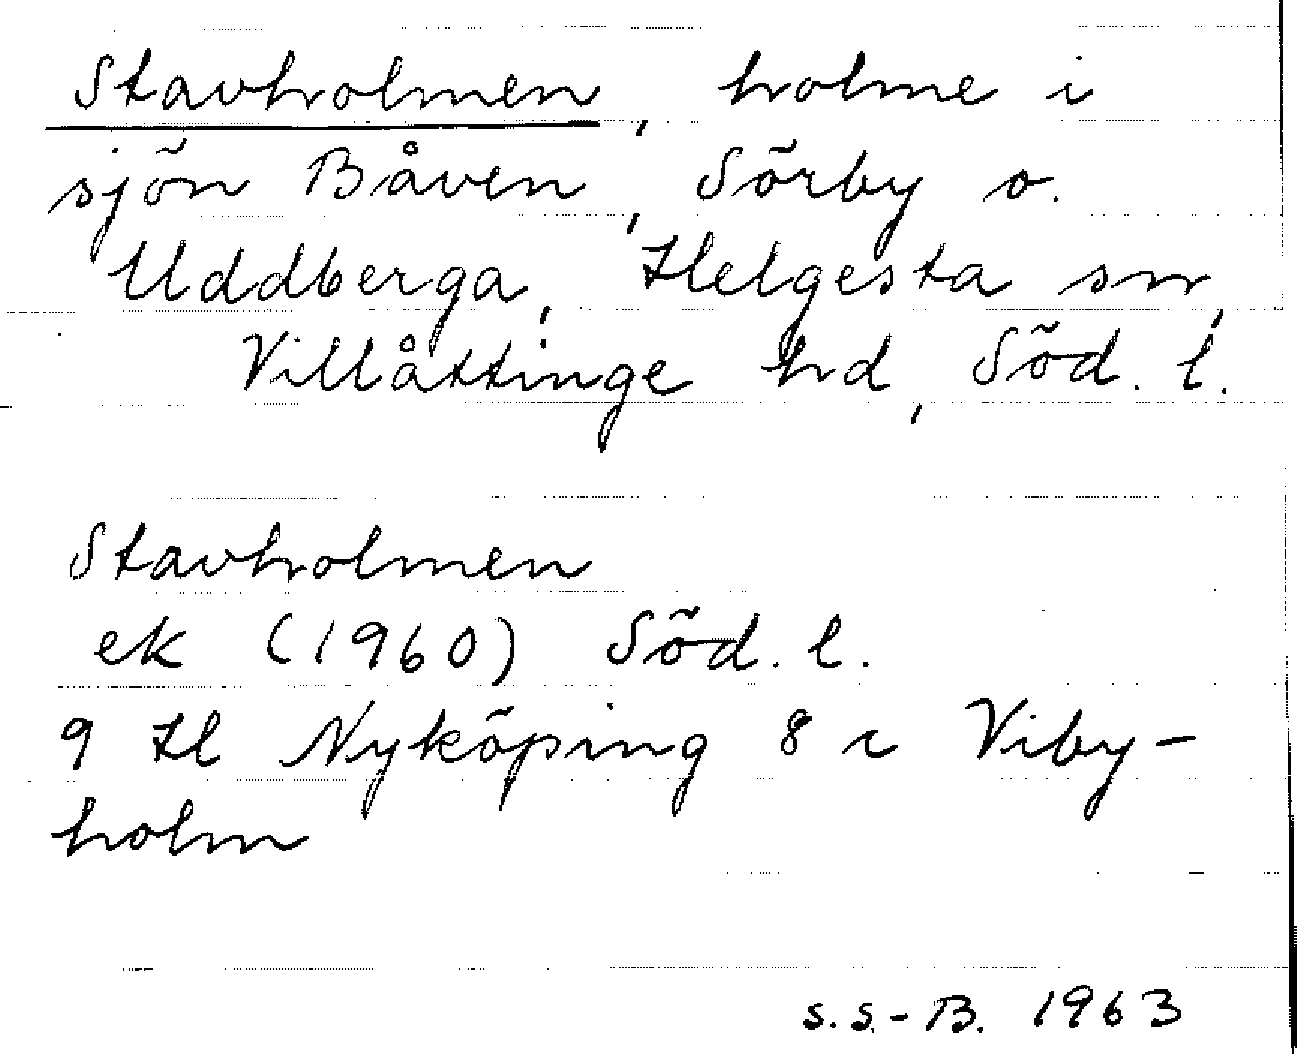 Stavholmen, holme i
sjön Båven, Sörby o.
Uddberga, Helgesta sn,
Villåttinge hd, Söd. l.
Stavholmen
ek (1960) Söd. l.
9 H Nyköping 8 c Viby-
holm
s.s.-B. 1963